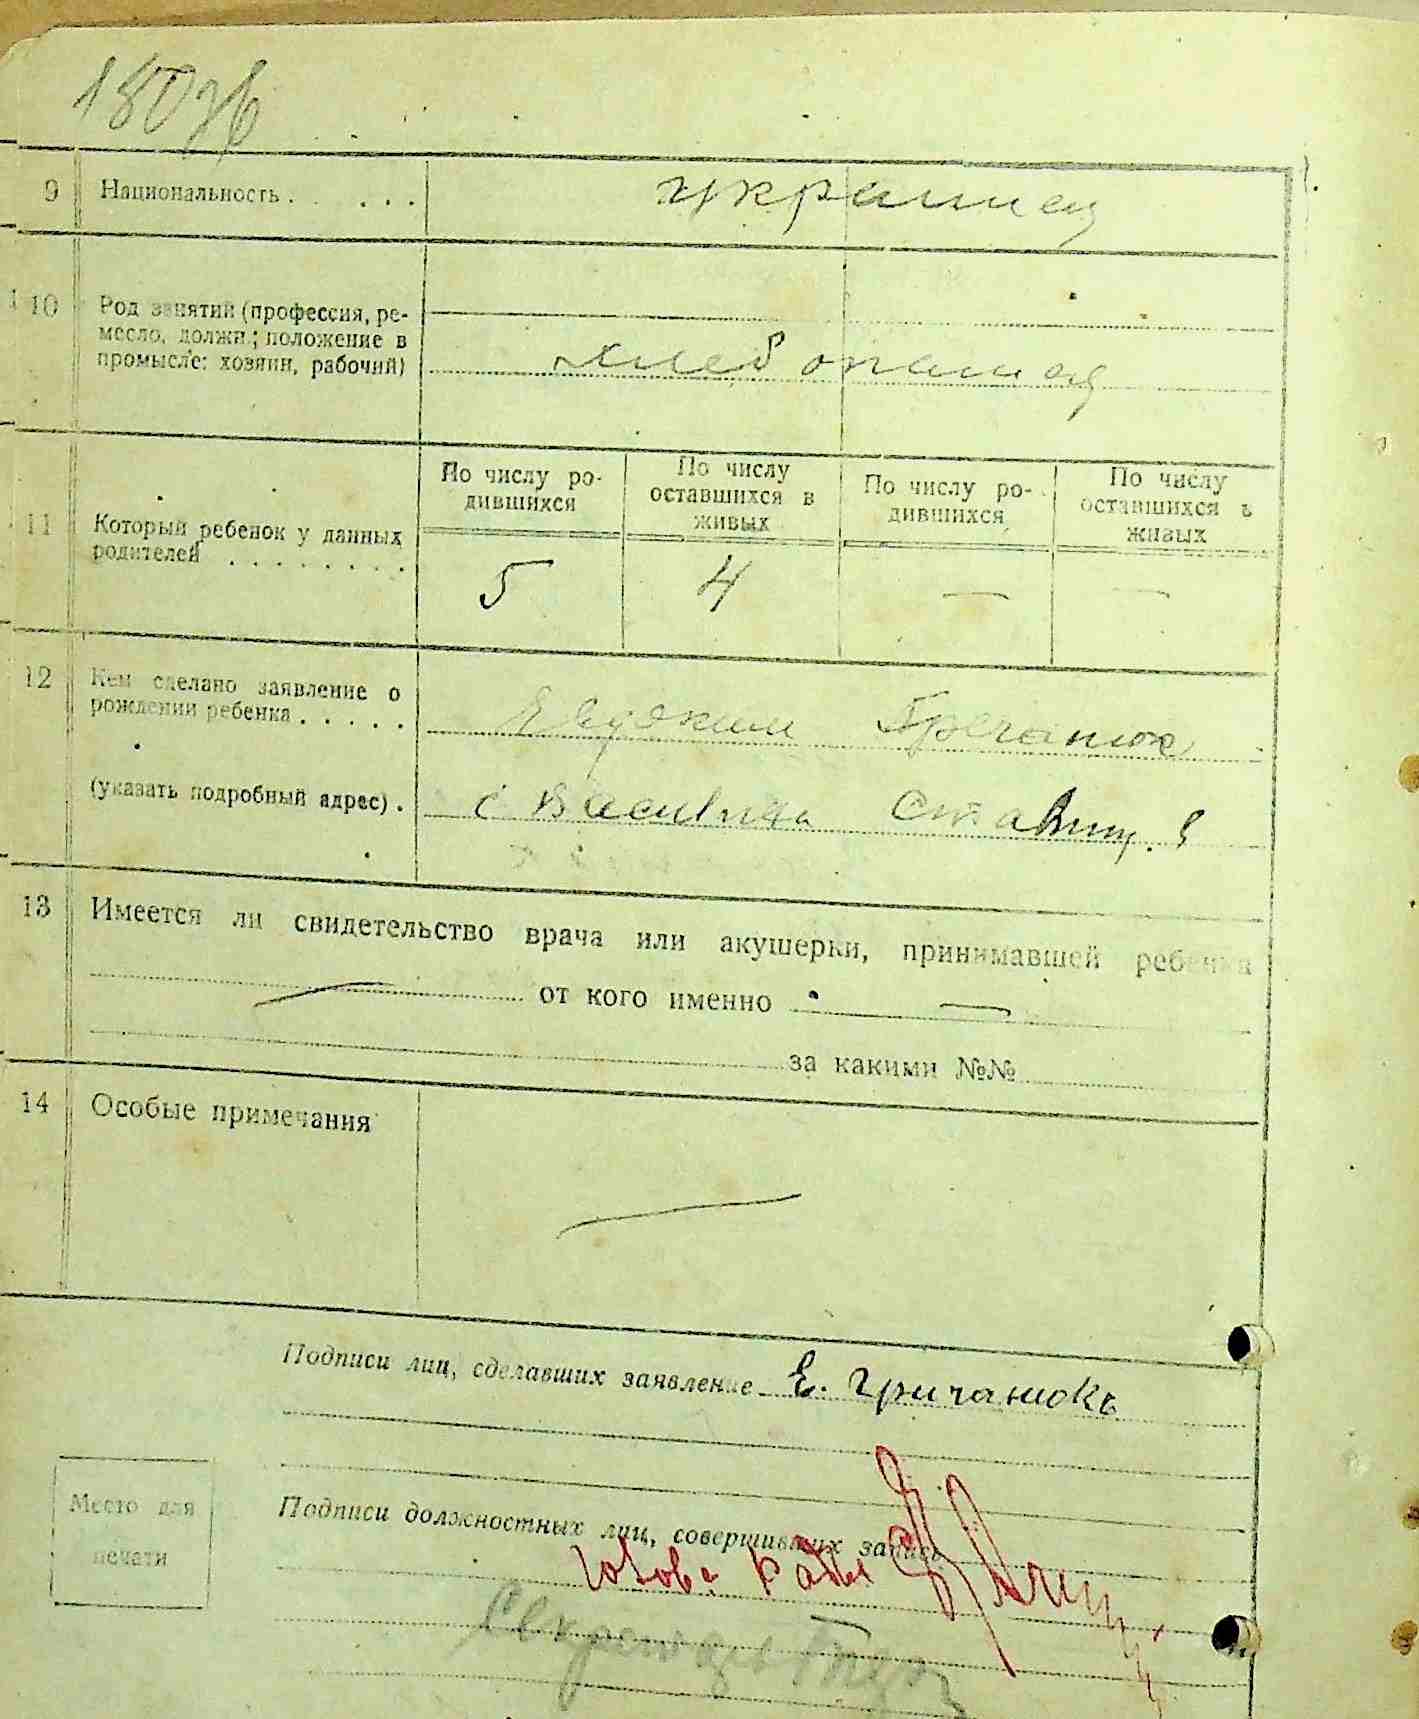 9 Национальность . . . . . украинец
10 Род занятий (профессия, ре-
месло, должн.; положение в
промысле: хозяин, рабочий)
хлебопашец
По числу ро-
дившихся
По числу
оставшихся в
живых
По числу ро-
дившихся
По числу
оставшихся в
живых
11 Который ребенок у данных
родителей . . . . . . . .
5 4 — —
12 Кем сделано заявление о
рождении ребенка . . . . . Евдоким Гречанюк
(указать подробный адрес) . с
13 Имеется ли свидетельство врача или акушерки, принимавшей ребенка
— от кого именно —
за какими №№
14 Особые примечания
—
Подписи лиц, сделавших заявление Е. Гричанюкъ
Место для
печати
Подписи должностных лиц, совершивших запись
Голова
Секретарь